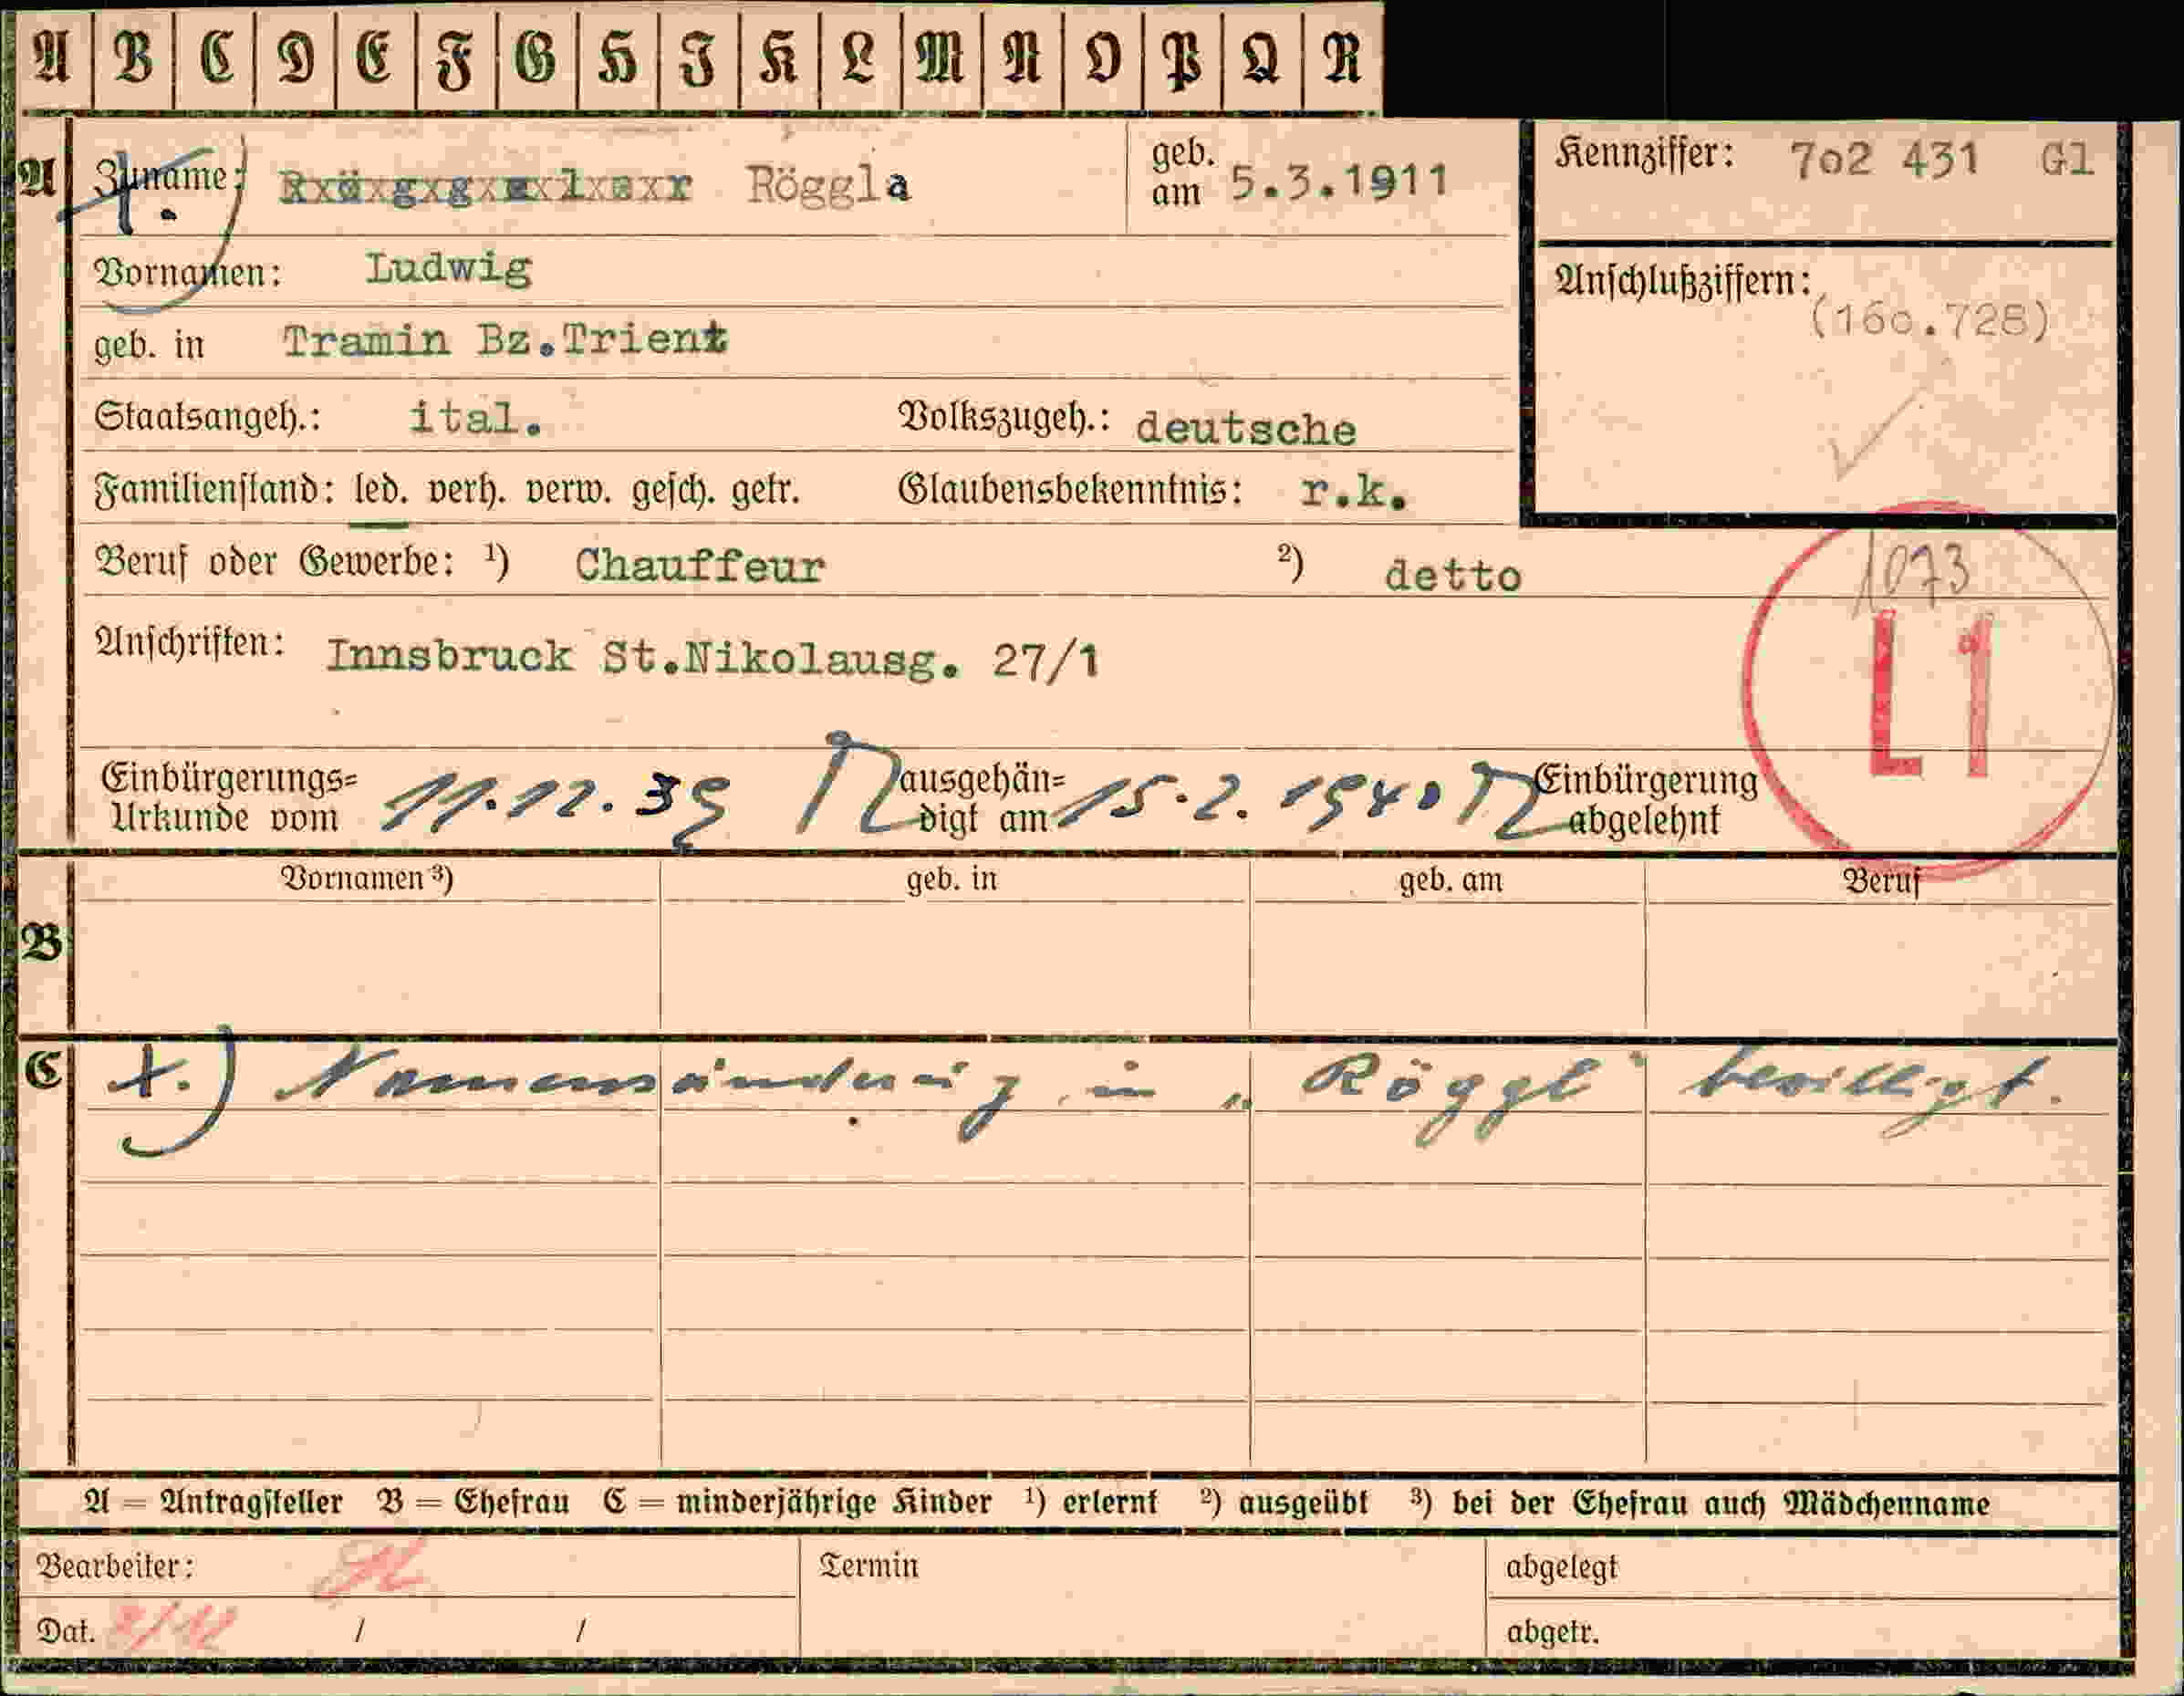 A B C D E F G H I K L M N O P Q R
A Zuname: Röggla geb. am 5.3.1911
x.)
Kennziffer: 7o2 431 Gl
Vornamen: Ludwig
Anschlußziffern:
(16o.728)
geb. in Tramin Bz.Trient
Staatsangeh.: ital. Volkszugeh.: deutsche
Familienstand: led. verh. verw. gesch. getr. Glaubensbekenntnis: r.k.
Beruf oder Gewerbe: ¹) Chauffeur ²) detto
1073
L1
Anschriften: Innsbruck St.Nikolausg. 27/1
Einbürgerungs=
Urkunde vom 11.12.39 ausgehän=
digt am 15.2.1940 Einbürgerung
abgelehnt
Vornamen ³) geb. in geb. am Beruf
B
C x.) Namensänderung in „Röggl" bewilligt.
A = Antragsteller B = Ehefrau C = minderjährige Kinder ¹) erlernt ²) ausgeübt ³) bei der Ehefrau auch Mädchenname
Bearbeiter: Termin abgelegt
Dat. / / abgetr.